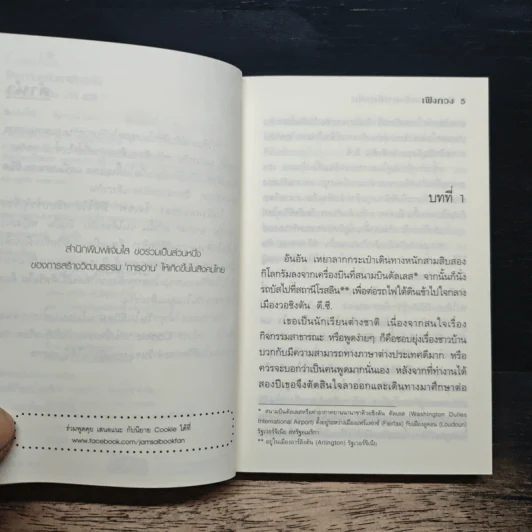 สำนักพิมพ์แจ่มใส ขอร่วมเป็นส่วนหนึ่ง
ของการสร้างวัฒนธรรม 'การอ่าน' ให้เกิดขึ้นในสังคมไทย
ร่วมพูดคุย เสนอแนะ กับนิยาย Cookie ได้ที่
www.facebook.com/jamsaibookfan
เฟิงกวง 5
บทที่ 1
อันอัน เหยาลากกระเป๋าเดินทางหนักสามสิบสอง
กิโลกรัมลงจากเครื่องบินที่สนามบินดัลเลส* จากนั้นก็นั่ง
รถบัสไปที่สถานีโรสลิน** เพื่อต่อรถไฟใต้ดินเข้าไปใจกลาง
เมืองวอชิงตัน ดี.ซี.
เธอเป็นนักเรียนต่างชาติ เนื่องจากสนใจเรื่อง
กิจกรรมสาธารณะ หรือพูดง่ายๆ ก็คือชอบยุ่งเรื่องชาวบ้าน
บวกกับมีความสามารถทางภาษาต่างประเทศดีมาก หรือ
ควรจะบอกว่าเป็นคนพูดมากนั่นเอง หลังจากที่ทำงานได้
สองปีเธอจึงตัดสินใจลาออกและเดินทางมาศึกษาต่อ
* สนามบินดัลเลสหรือท่าอากาศยานนานาชาติวอชิงตัน ดัลเลส (Washington Dulles
International Airport) ตั้งอยู่ระหว่างเมืองแฟร์แฟกซ์ (Fairfax) กับเมืองลูดอน (Loudoun)
รัฐเวอร์จิเนีย สหรัฐอเมริกา
** อยู่ในเมืองอาร์ลิงตัน (Arlington) รัฐเวอร์จิเนีย